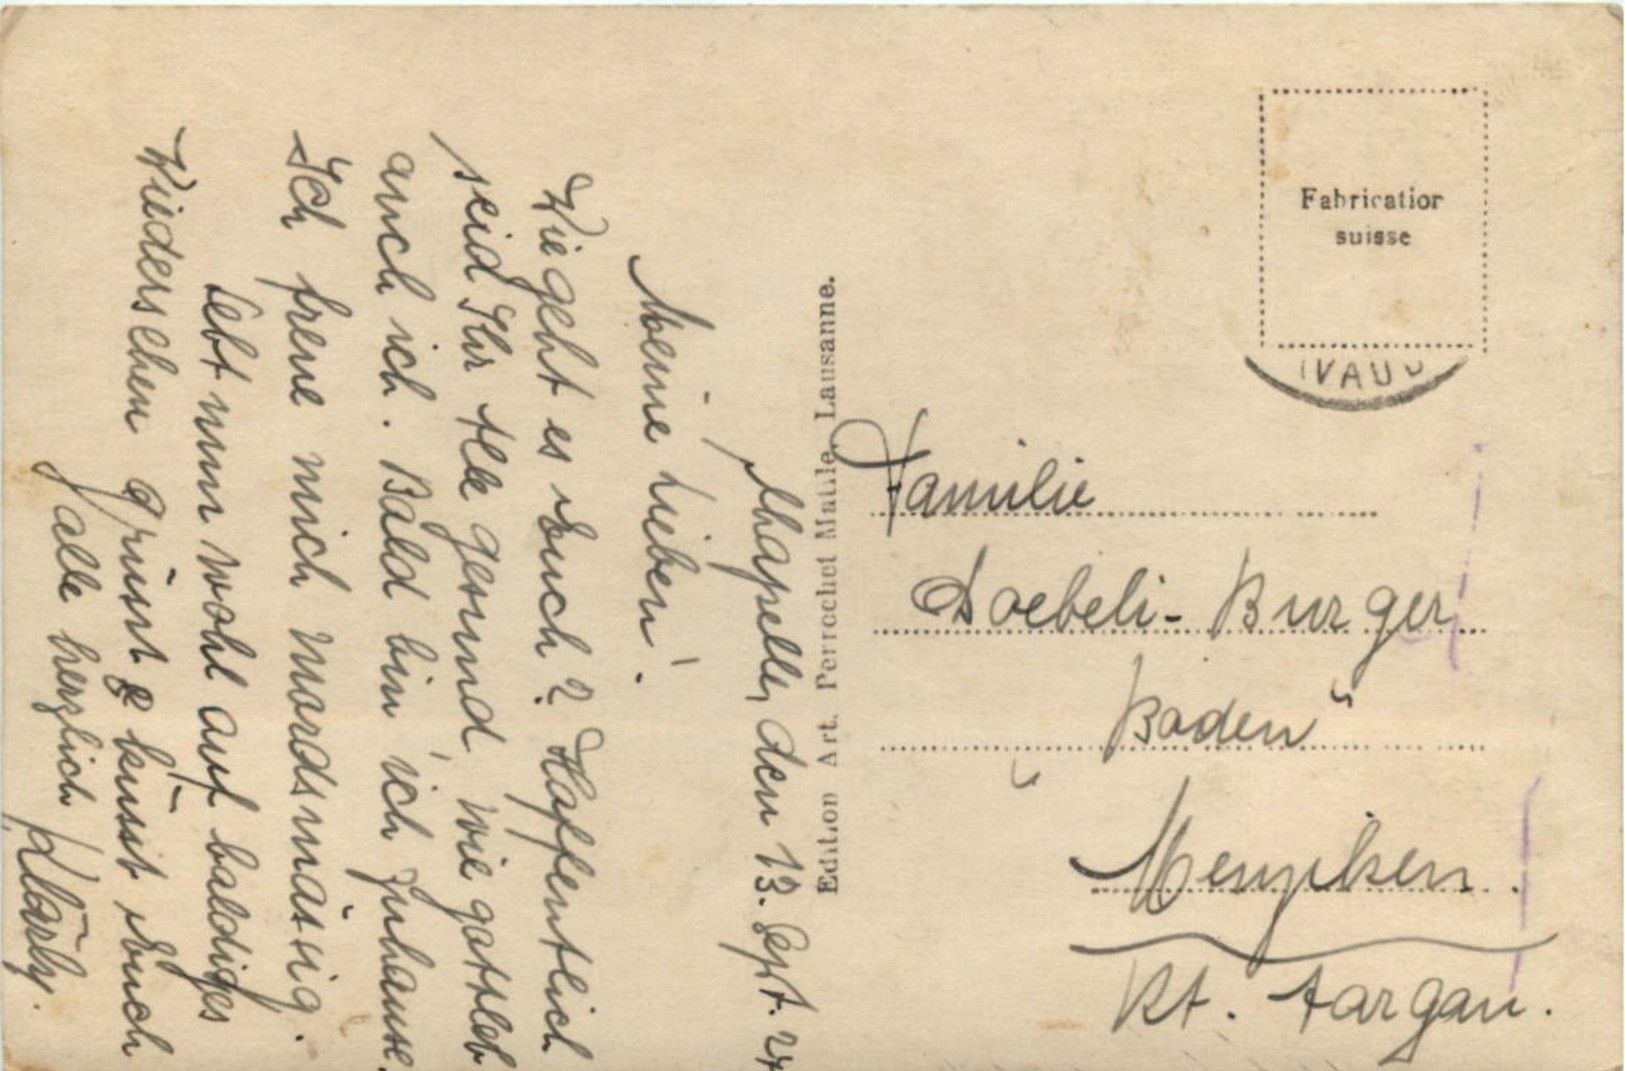 Chapelle, den 13. Sept. 27
Meine Lieben!
Wie geht es Euch? Hoffentlich
seid Ihr Alle gesund wie gottlob
auch ich. Bald bin ich zuhause.
Ich freue mich mordsmässig.
Lebt nun wohl auf baldiges
Wiedersehen grüsst & küsst Euch
alle herzlich Klärly.
Edition Art. Perrochet Matile, Lausanne.
Fabrication
suisse
(VAUD
Familie
Doebeli-Burger
„Boden“
Menziken.
Kt. Aargau.